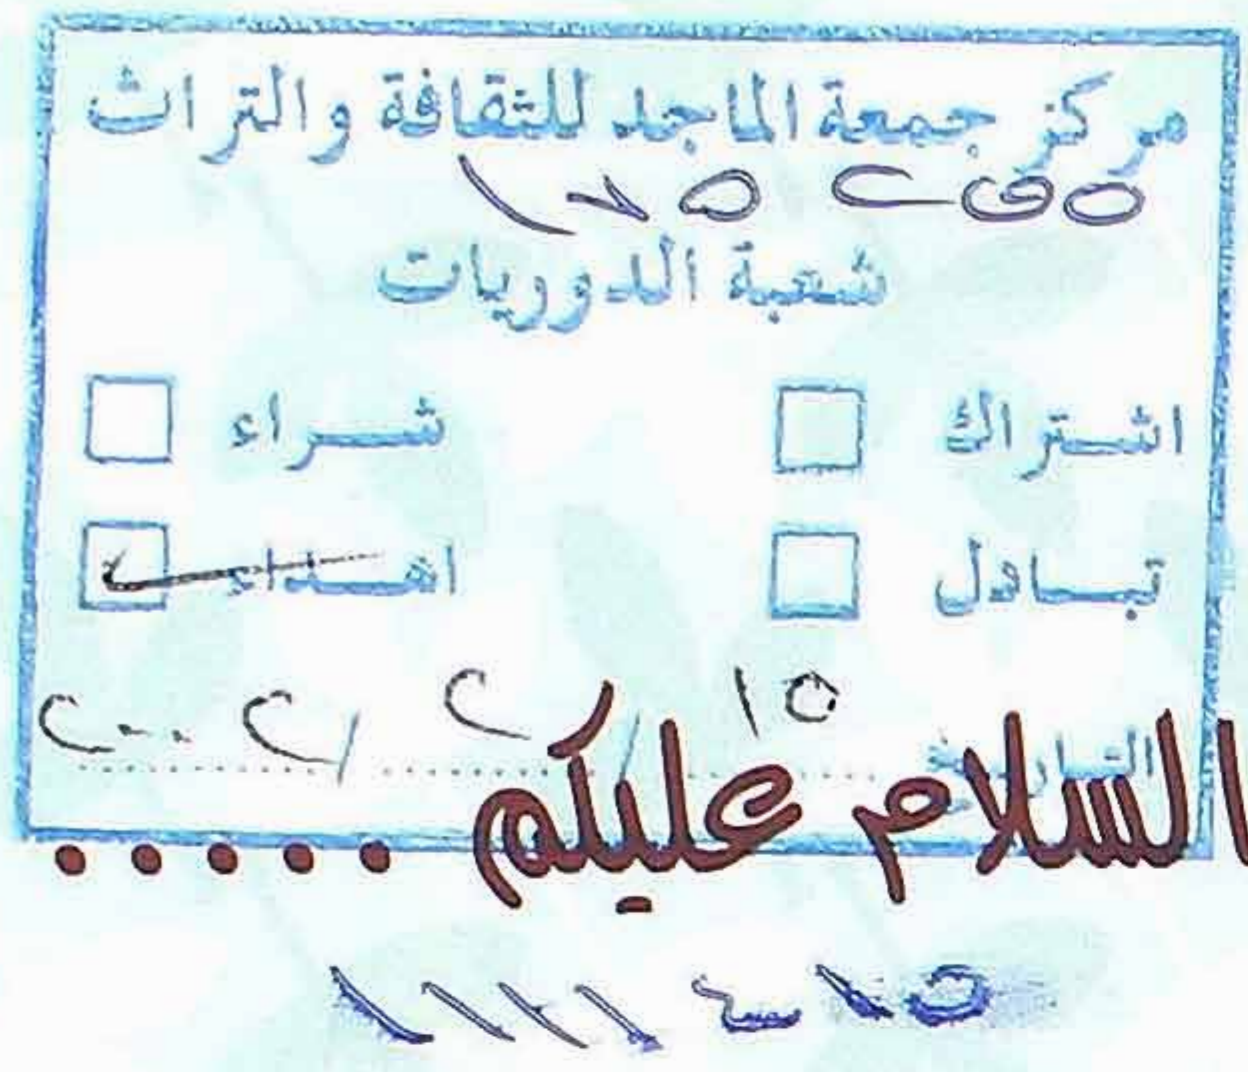 مركز جمعة الماجد للثقافة والتراث
شعبة الدوريات
اشتراك شراء
تبادل اهداء
التاريخ ١٥ / ٢ / ٢٠٠٢
السلام عليكم .....